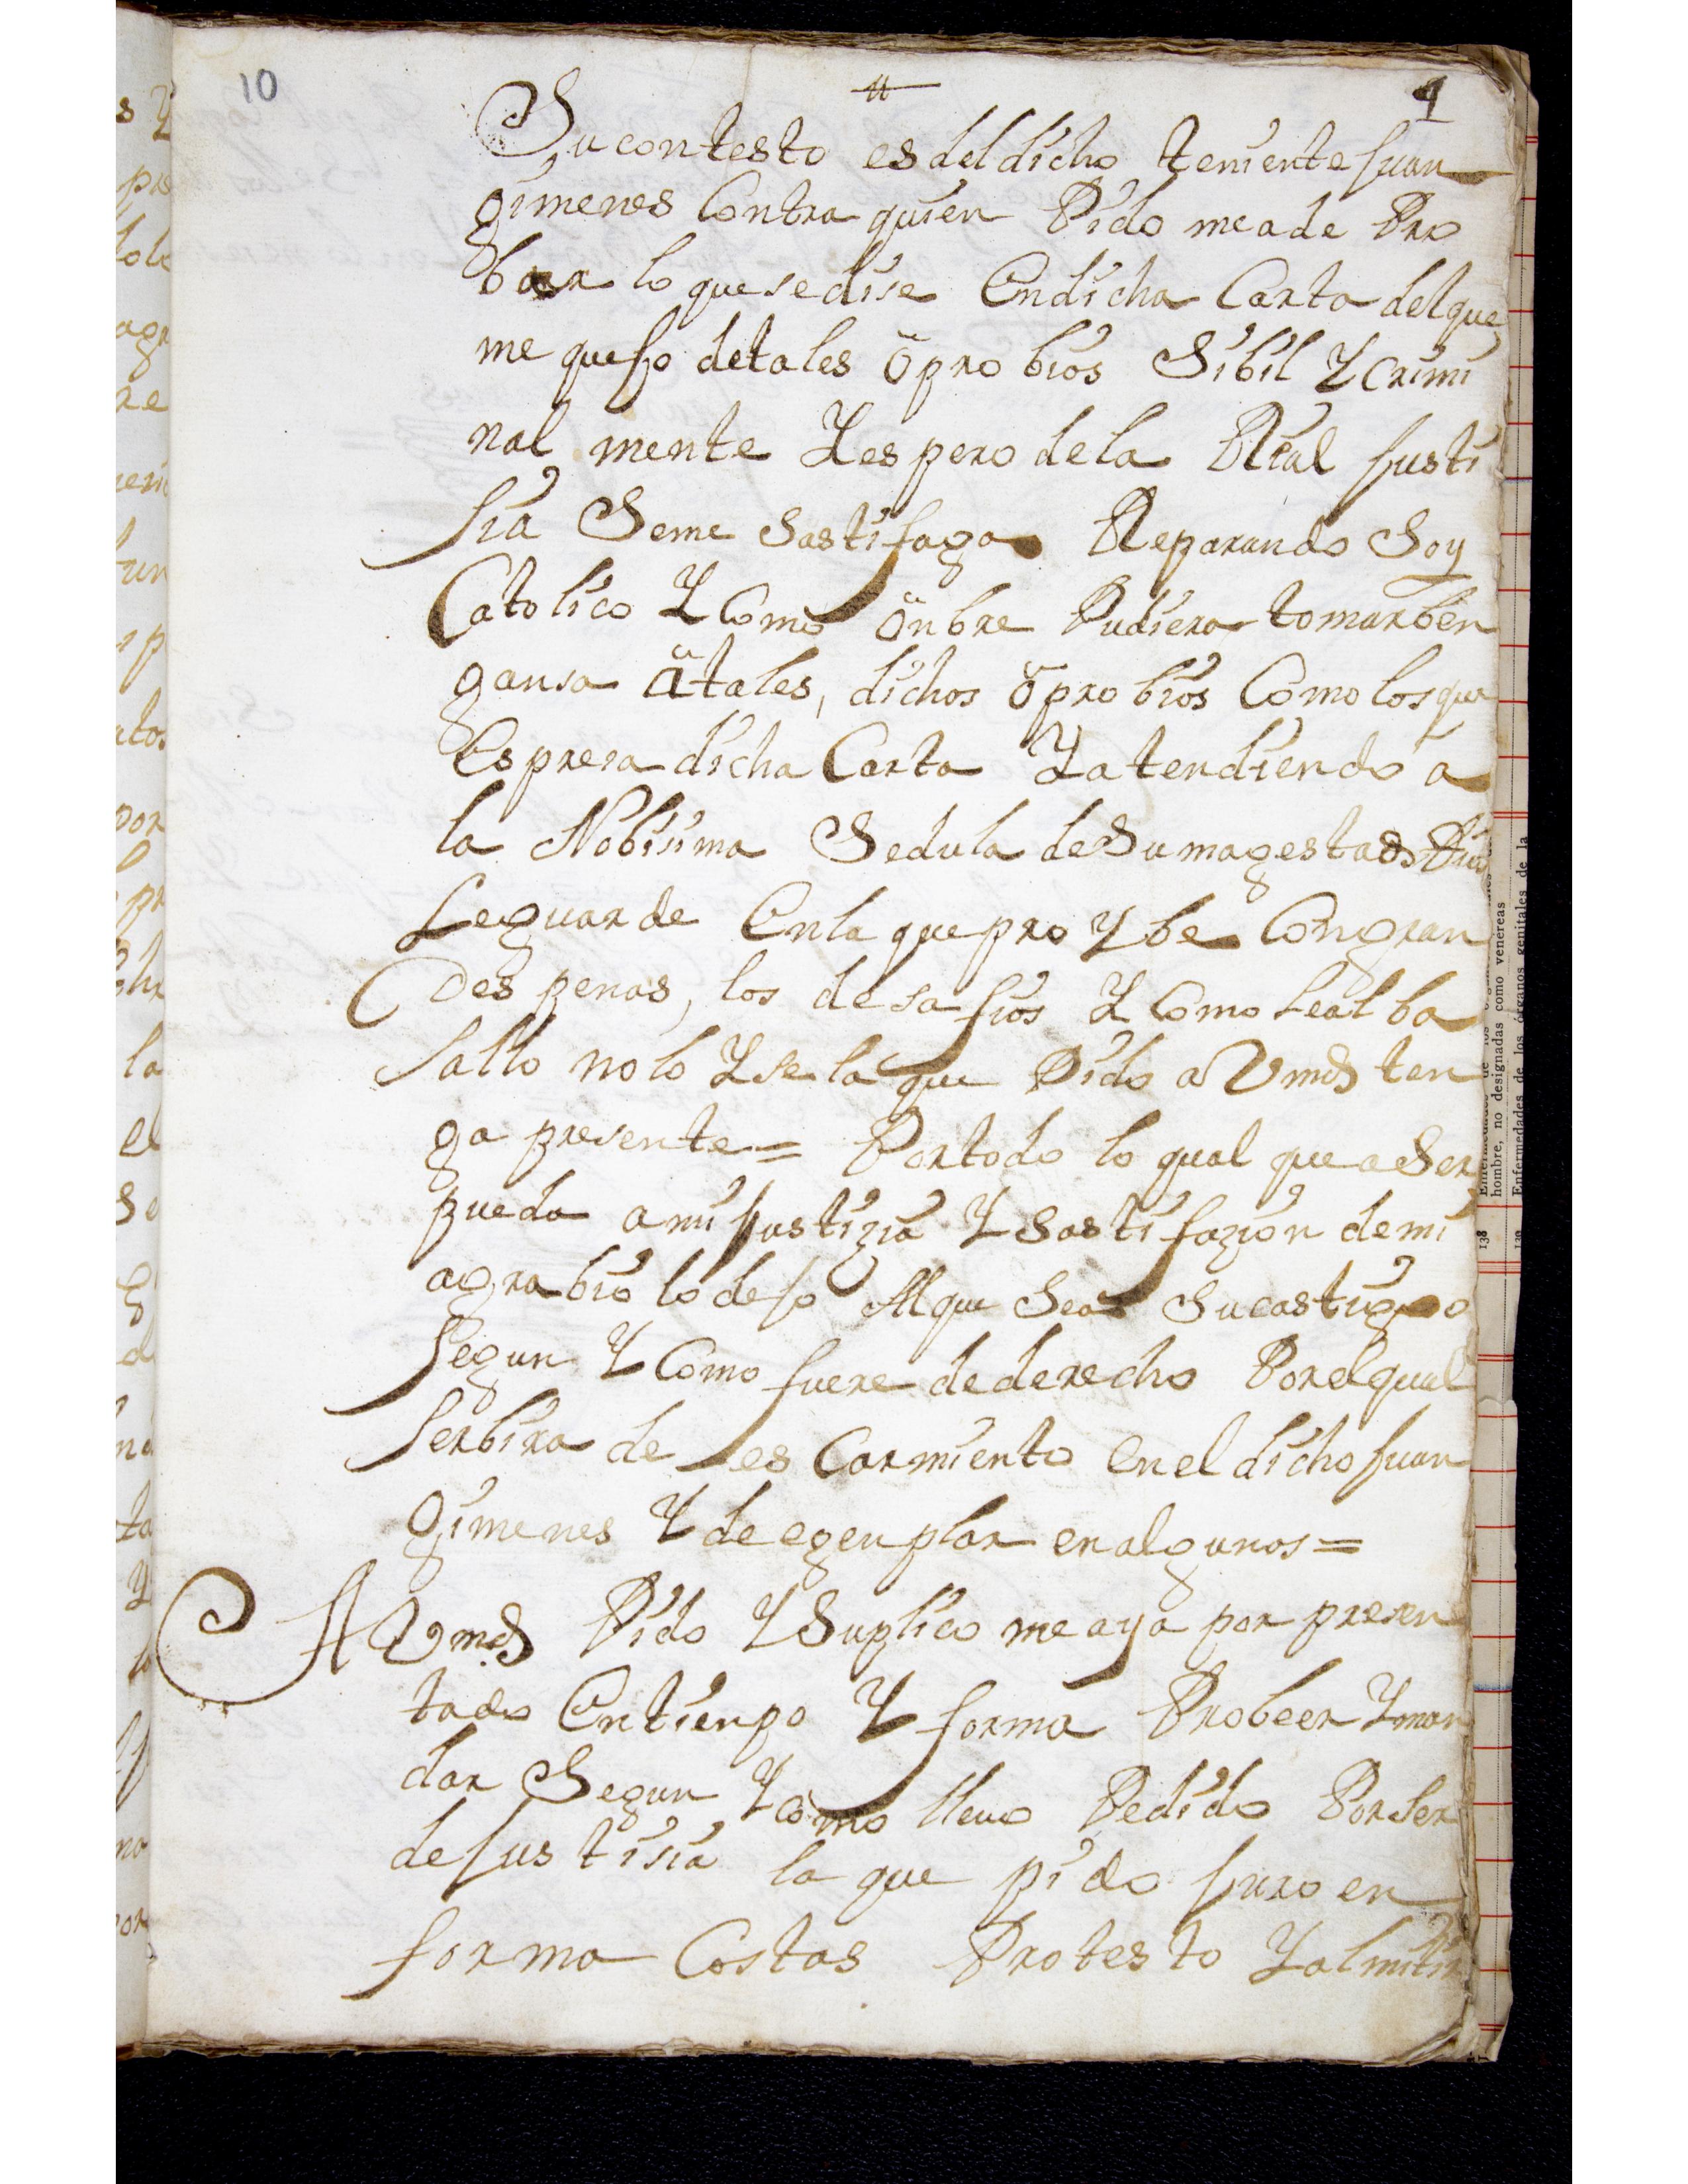 10
4
Su contesto es del dicho teniente Juan
gimenes Contra quien Pido me a de Pro
bar lo que se dise En dicha Carta del que
me quejo de tales öprobios Sibil Y Crimi
nal mente Y espero de la Rial Justi
sia Se me Sastifaga Reparando Soy
Catolico Y Como önbre Pudiera tomar ben
gansa ä tales, dichos öprobios Como los que
Espresa dicha Carta Y atendiendo a
la Nobisima Sedula de Su magestad Dios
Le guarde En la que pro Y be Con gran
Des penas, los desafios Y Como Leal ba
sallo no lo Yse la que Pido a Vmd ten
ga presente = Por todo lo qual que a Ser
pueda a mi Justizia Y Sastifazion de mi
agrabio lo dejo Al que Sea Su castigo
Segun Y Como fuere de derecho Por el qual
Serbira de es Carmiento en el dicho Juan
Gimenes Y de egenplar en algunos =
A Vmd Pido Y Suplico me aya por presen
tado En tienpo Y forma Probeer Y man
dar Segun Y como llevo Pedido Por Ser
de Justisia la que pido Juro en
forma Costas Protesto Y almitir
138
hombre, no designadas como venereas
139
Enfermedades de los órganos genitales de la